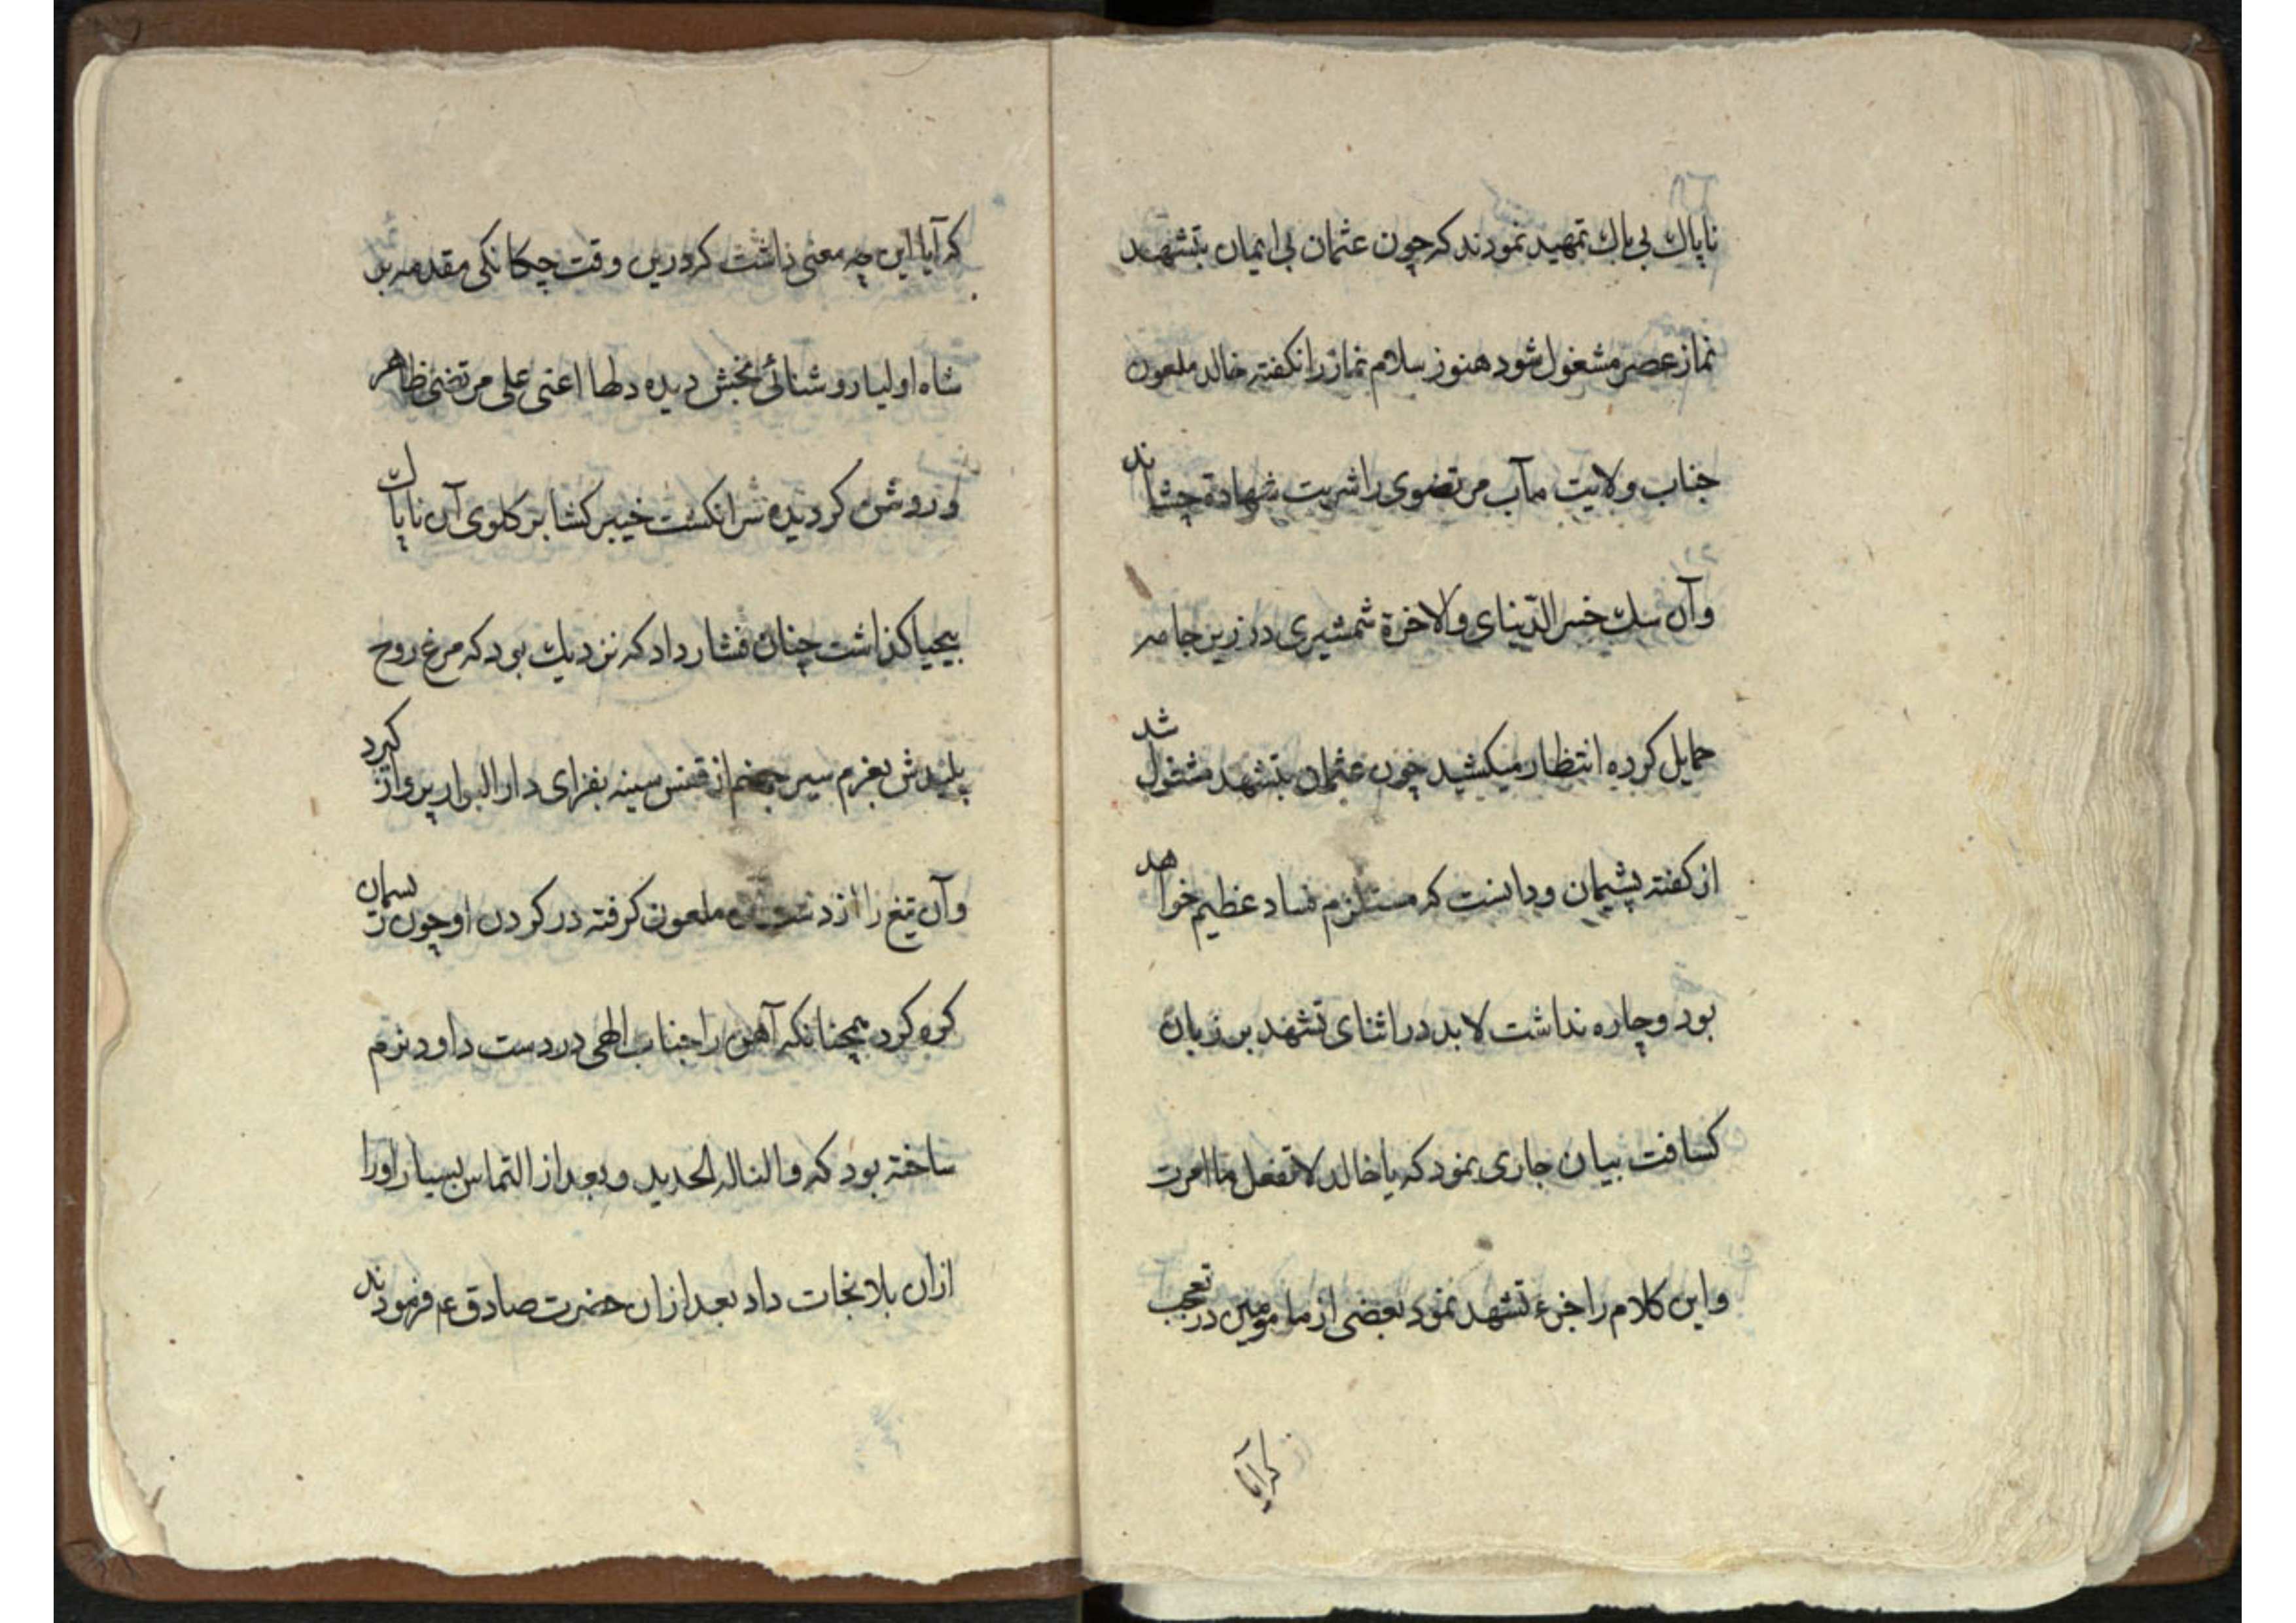 ناپاك بی باك تمهید نمودند که چون عثمان بی ایمان بتشهد
نماز عصر مشغول شود هنوز سلام نماز را نکفته خالد ملعون
جناب ولایت مآب مرتضوی را شربت شهادة چشاند
وآن سك خسر الدّنیای والاخرة شمشیری در زیر جامه
حمایل کرده انتظار میکشید چون عثمان بتشهد مشغول شد
از کفته پشیمان ودانست که مستلزم فساد عظیم خواهد
بود وچاره نداشت لابد در اثنای تشهد بر زبان
کسافت بیان جاری نمود که یا خالد لا تفعل ما امرت
واین کلام را جزء تشهد نمود بعضی از مامومین در تعجب
که آیا
که آیا این چه معنی داشت که درین وقت چکانکی مقدمه بر
شاه اولیا روشنائی بخش دیده دلها اعنی علی مرتضی ظاهر
و روشن کردیده سر انکشت خیبر کشا بر کلوی آن ناپاك
بیحیا کذاشت چنان فشار داد که نزدیك بود که مرغ روح
پلیدش بعزم سیر جهنم از قفس سینه بفزای دار البوار پرواز کیرد
وآن تیغ را از دست ملعون کرفته در کردن او چون ریسمان
کره کرد همچنانکه آهن را جناب الهی در دست داود نرم
ساخته بود که والناله الحدید وبعد از التماس بسیار اورا
ازان بلا نجات داد بعد ازان حضرت صادق عم فرمودند